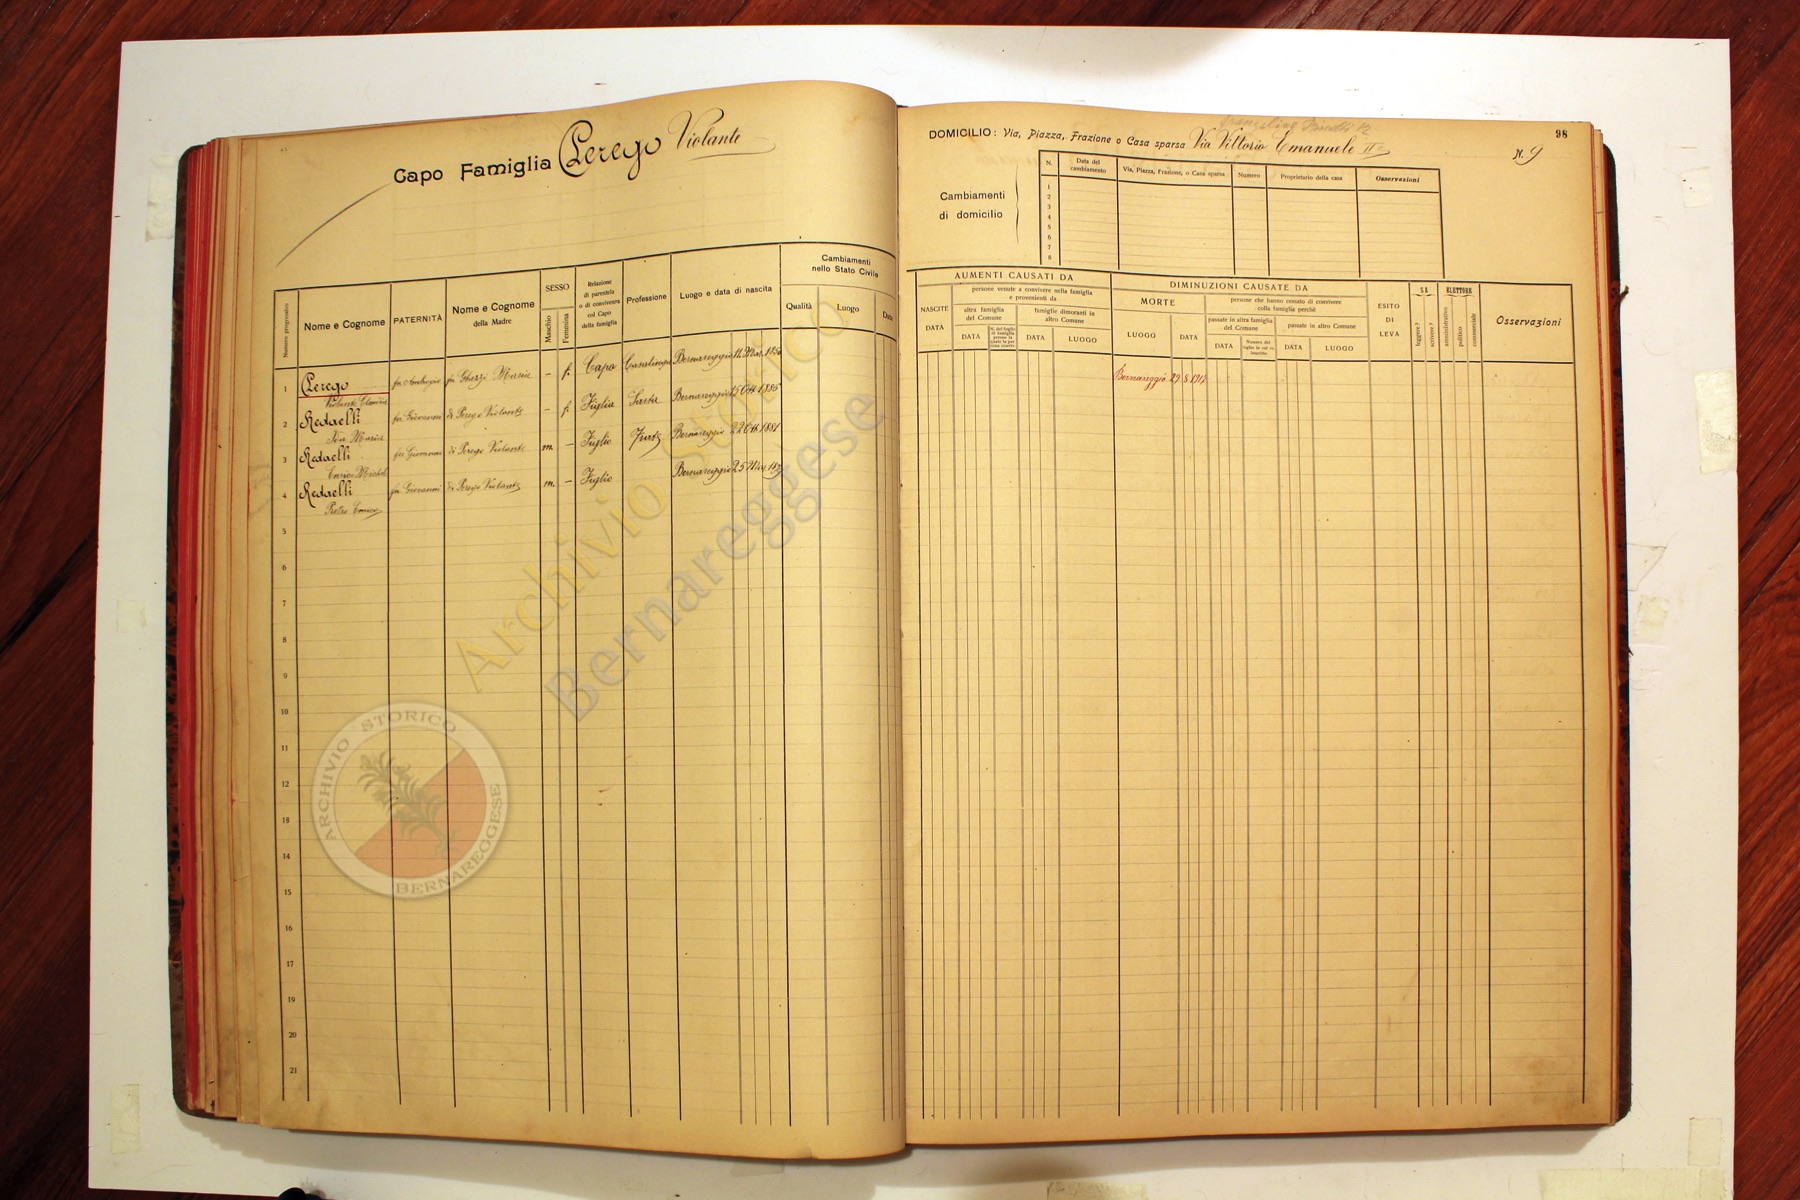 Capo Famiglia Perego Violante
Cambiamenti
nello Stato Civile
Numero progressivo
Nome e Cognome
PATERNITÀ
Nome e Cognome
della Madre
SESSO
Maschio
Femmina
Relazione
di parentela
o di convivenza
col Capo
della famiglia
Professione
Luogo e data di nascita
Qualità
Luogo
Data
1 Perego fu Ambrogio fu Ghezzi Maria – f. Capo Casalinga Bernareggio 12 Mar. 185
Violante
2 Redaelli fu Giovanni di Perego Violante – f. Figlia Sarta Bernareggio 15 Ott. 1885
Ida Maria
3 Redaelli fu Giovanni di Perego Violante m. – Figlio Bernareggio 22 Ott. 1881
Enrico
4 Redaelli fu Giovanni di Perego Violante m. – Figlio Bernareggio 25
Pietro Enrico
5
6
7
8
9
10
11
12
13
14
15
16
17
18
19
20
21
98
DOMICILIO: Via, Piazza, Frazione o Casa sparsa Via Vittorio Emanuele II
N. 9
Cambiamenti
di domicilio
N.
Data del
cambiamento
Via, Piazza, Frazione, o Casa sparsa
Numero
Proprietario della casa
Osservazioni
1
2
3
4
5
6
7
8
AUMENTI CAUSATI DA
NASCITE
DATA
persone venute a convivere nella famiglia
e provenienti da
altra famiglia
del Comune
famiglie dimoranti in
altro Comune
DATA
N. del foglio
di famiglia
DATA
LUOGO
DIMINUZIONI CAUSATE DA
MORTE
LUOGO
DATA
persone che hanno cessato di convivere
colla famiglia perchè
passate in altra famiglia
del Comune
passate in altro Comune
DATA
Numero del
DATA
LUOGO
ESITO
DI
LEVA
SA
leggere?
scrivere?
ELETTORE
amministrativo
politico
commerciale
Osservazioni
Bernareggio 29 8 1917
Archivio Storico
Bernareggese
ARCHIVIO STORICO
BERNAREGGESE